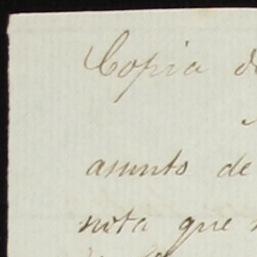 Copia
asunto de
nota que